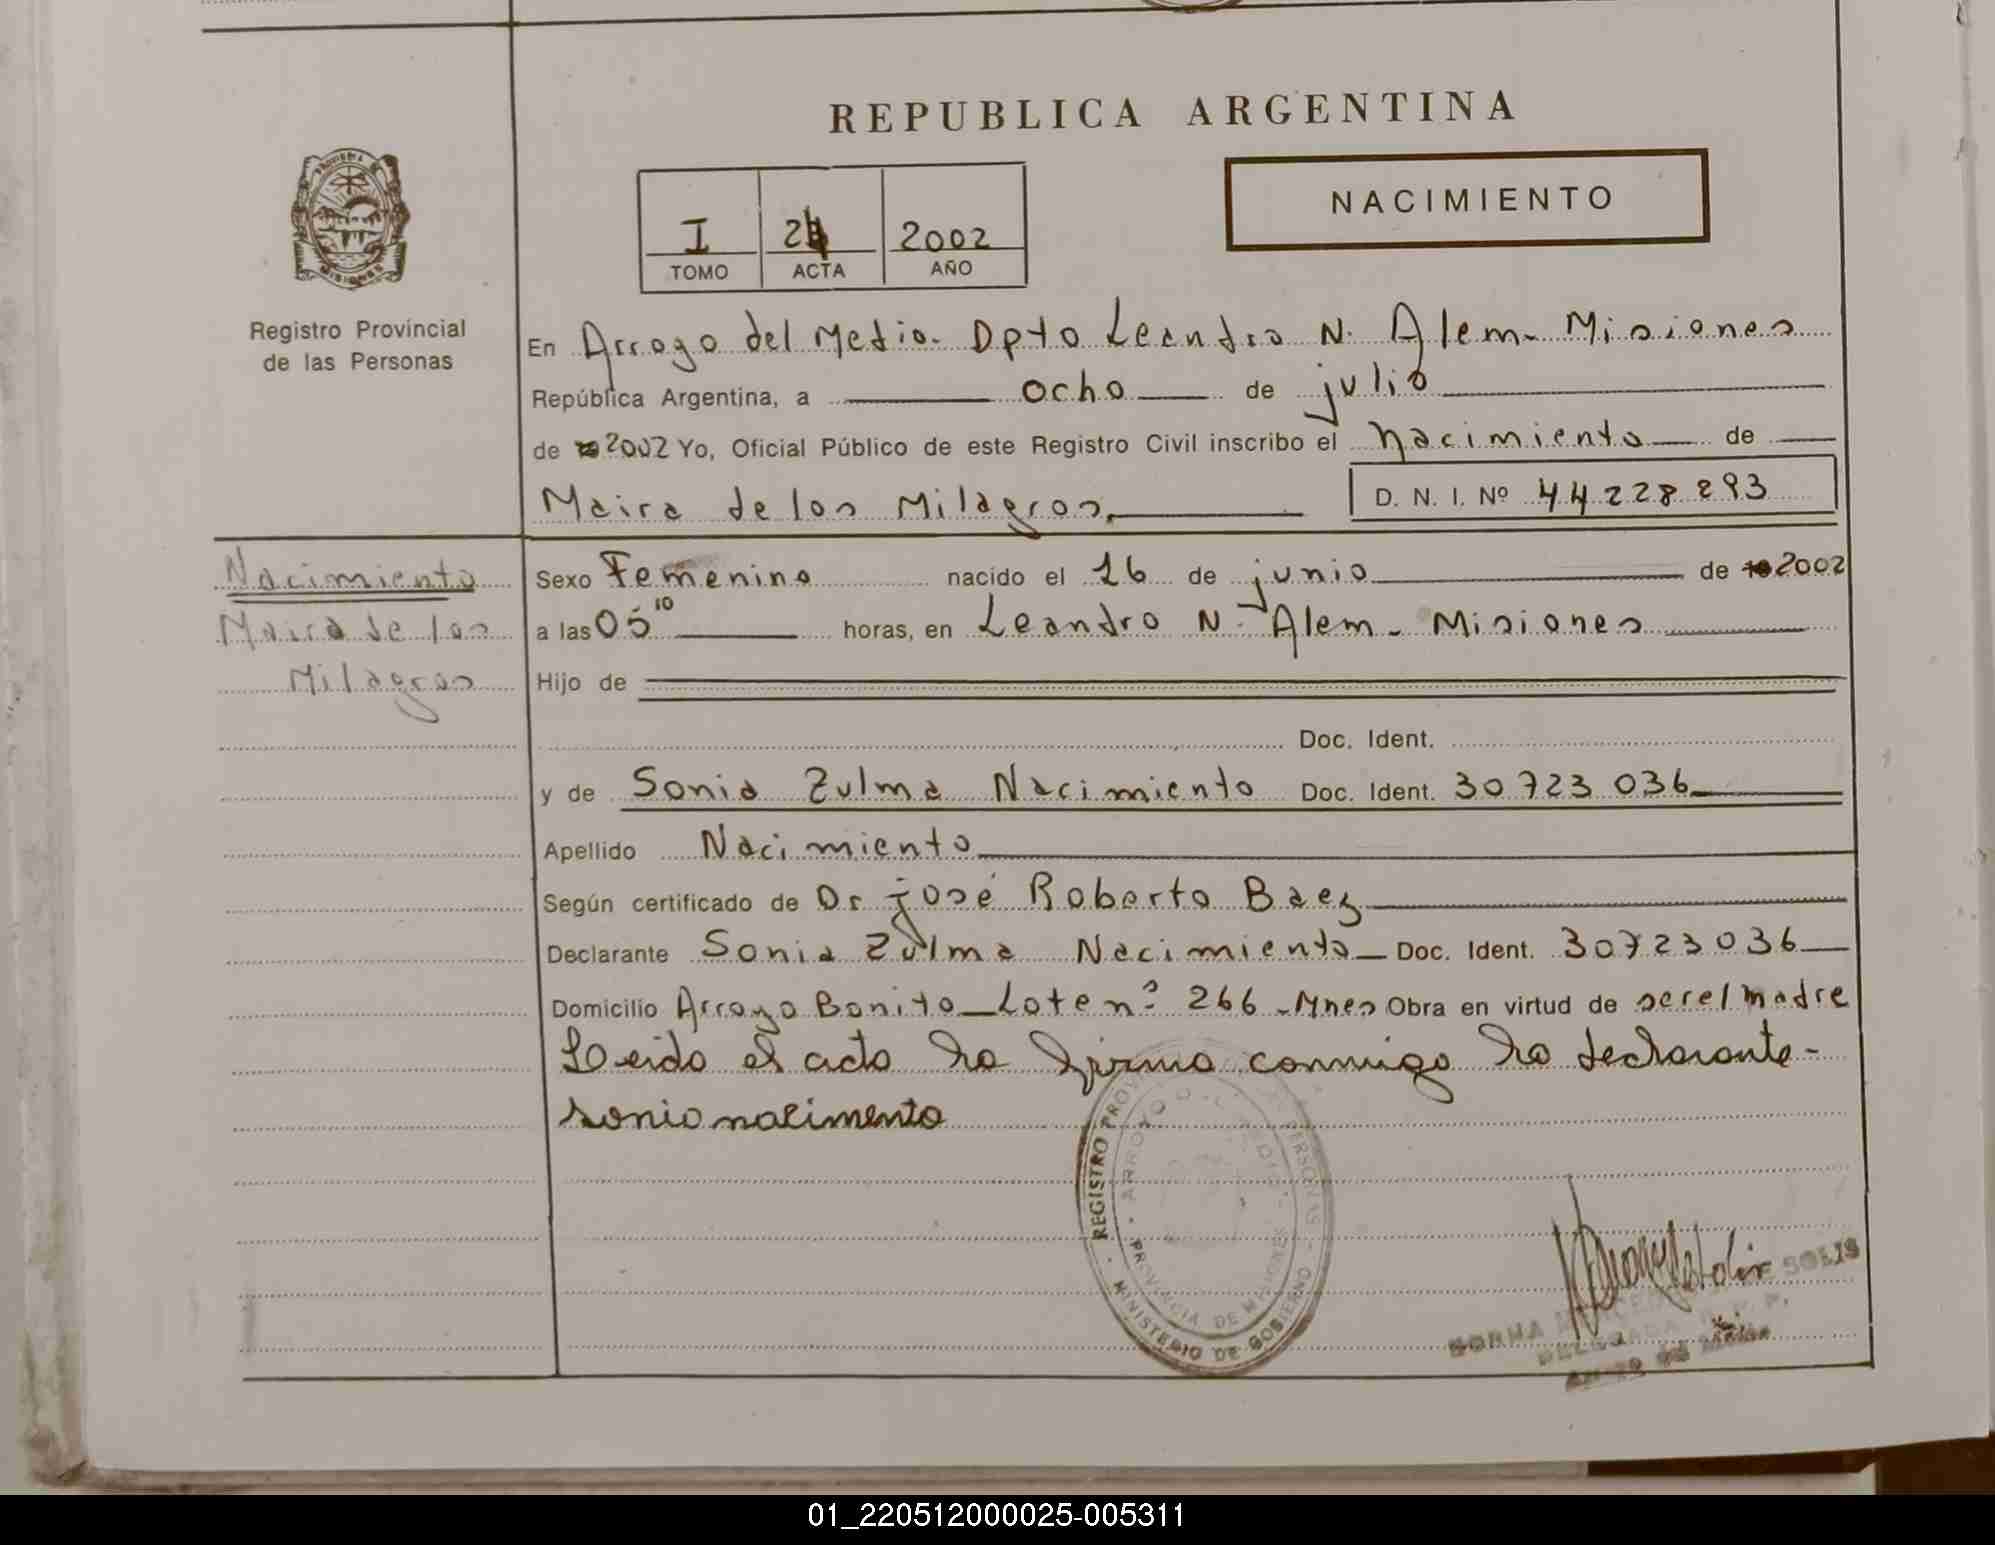 REPUBLICA ARGENTINA
NACIMIENTO
I 2002
TOMO ACTA AÑO
PROVINCIA DE MISIONES
Registro Provincial
de las Personas
En Arroyo del Medio. Dpto Leandro N. Alem - Misiones
República Argentina, a ocho de julio
de 2002 Yo, Oficial Público de este Registro Civil inscribo el nacimiento de
Maira de los Milagros. D. N. I. Nº 44228293
Nacimiento
Maira de los
Milagros
Sexo Femenino nacido el 26 de junio de 2002
a las 05 10 horas, en Leandro N. Alem - Misiones
Hijo de
Doc. Ident.
y de Sonia Zulma Nacimiento Doc. Ident. 30723036
Apellido Nacimiento
Según certificado de Dr José Roberto Baez
Declarante Sonia Zulma Nacimiento Doc. Ident. 30723036
Domicilio Arroyo Bonito - Lote nº 266 - Mnes Obra en virtud de ser el madre
Leido el acta la firma conmigo la declarante -
sonia nacimento
REGISTRO PROVINCIAL DE LAS PERSONAS - MINISTERIO DE GOBIERNO
ARROYO DEL MEDIO - PROVINCIA DE MISIONES
NORMA SOLIS
DELEGADA R. P. P.
01_220512000025-005311